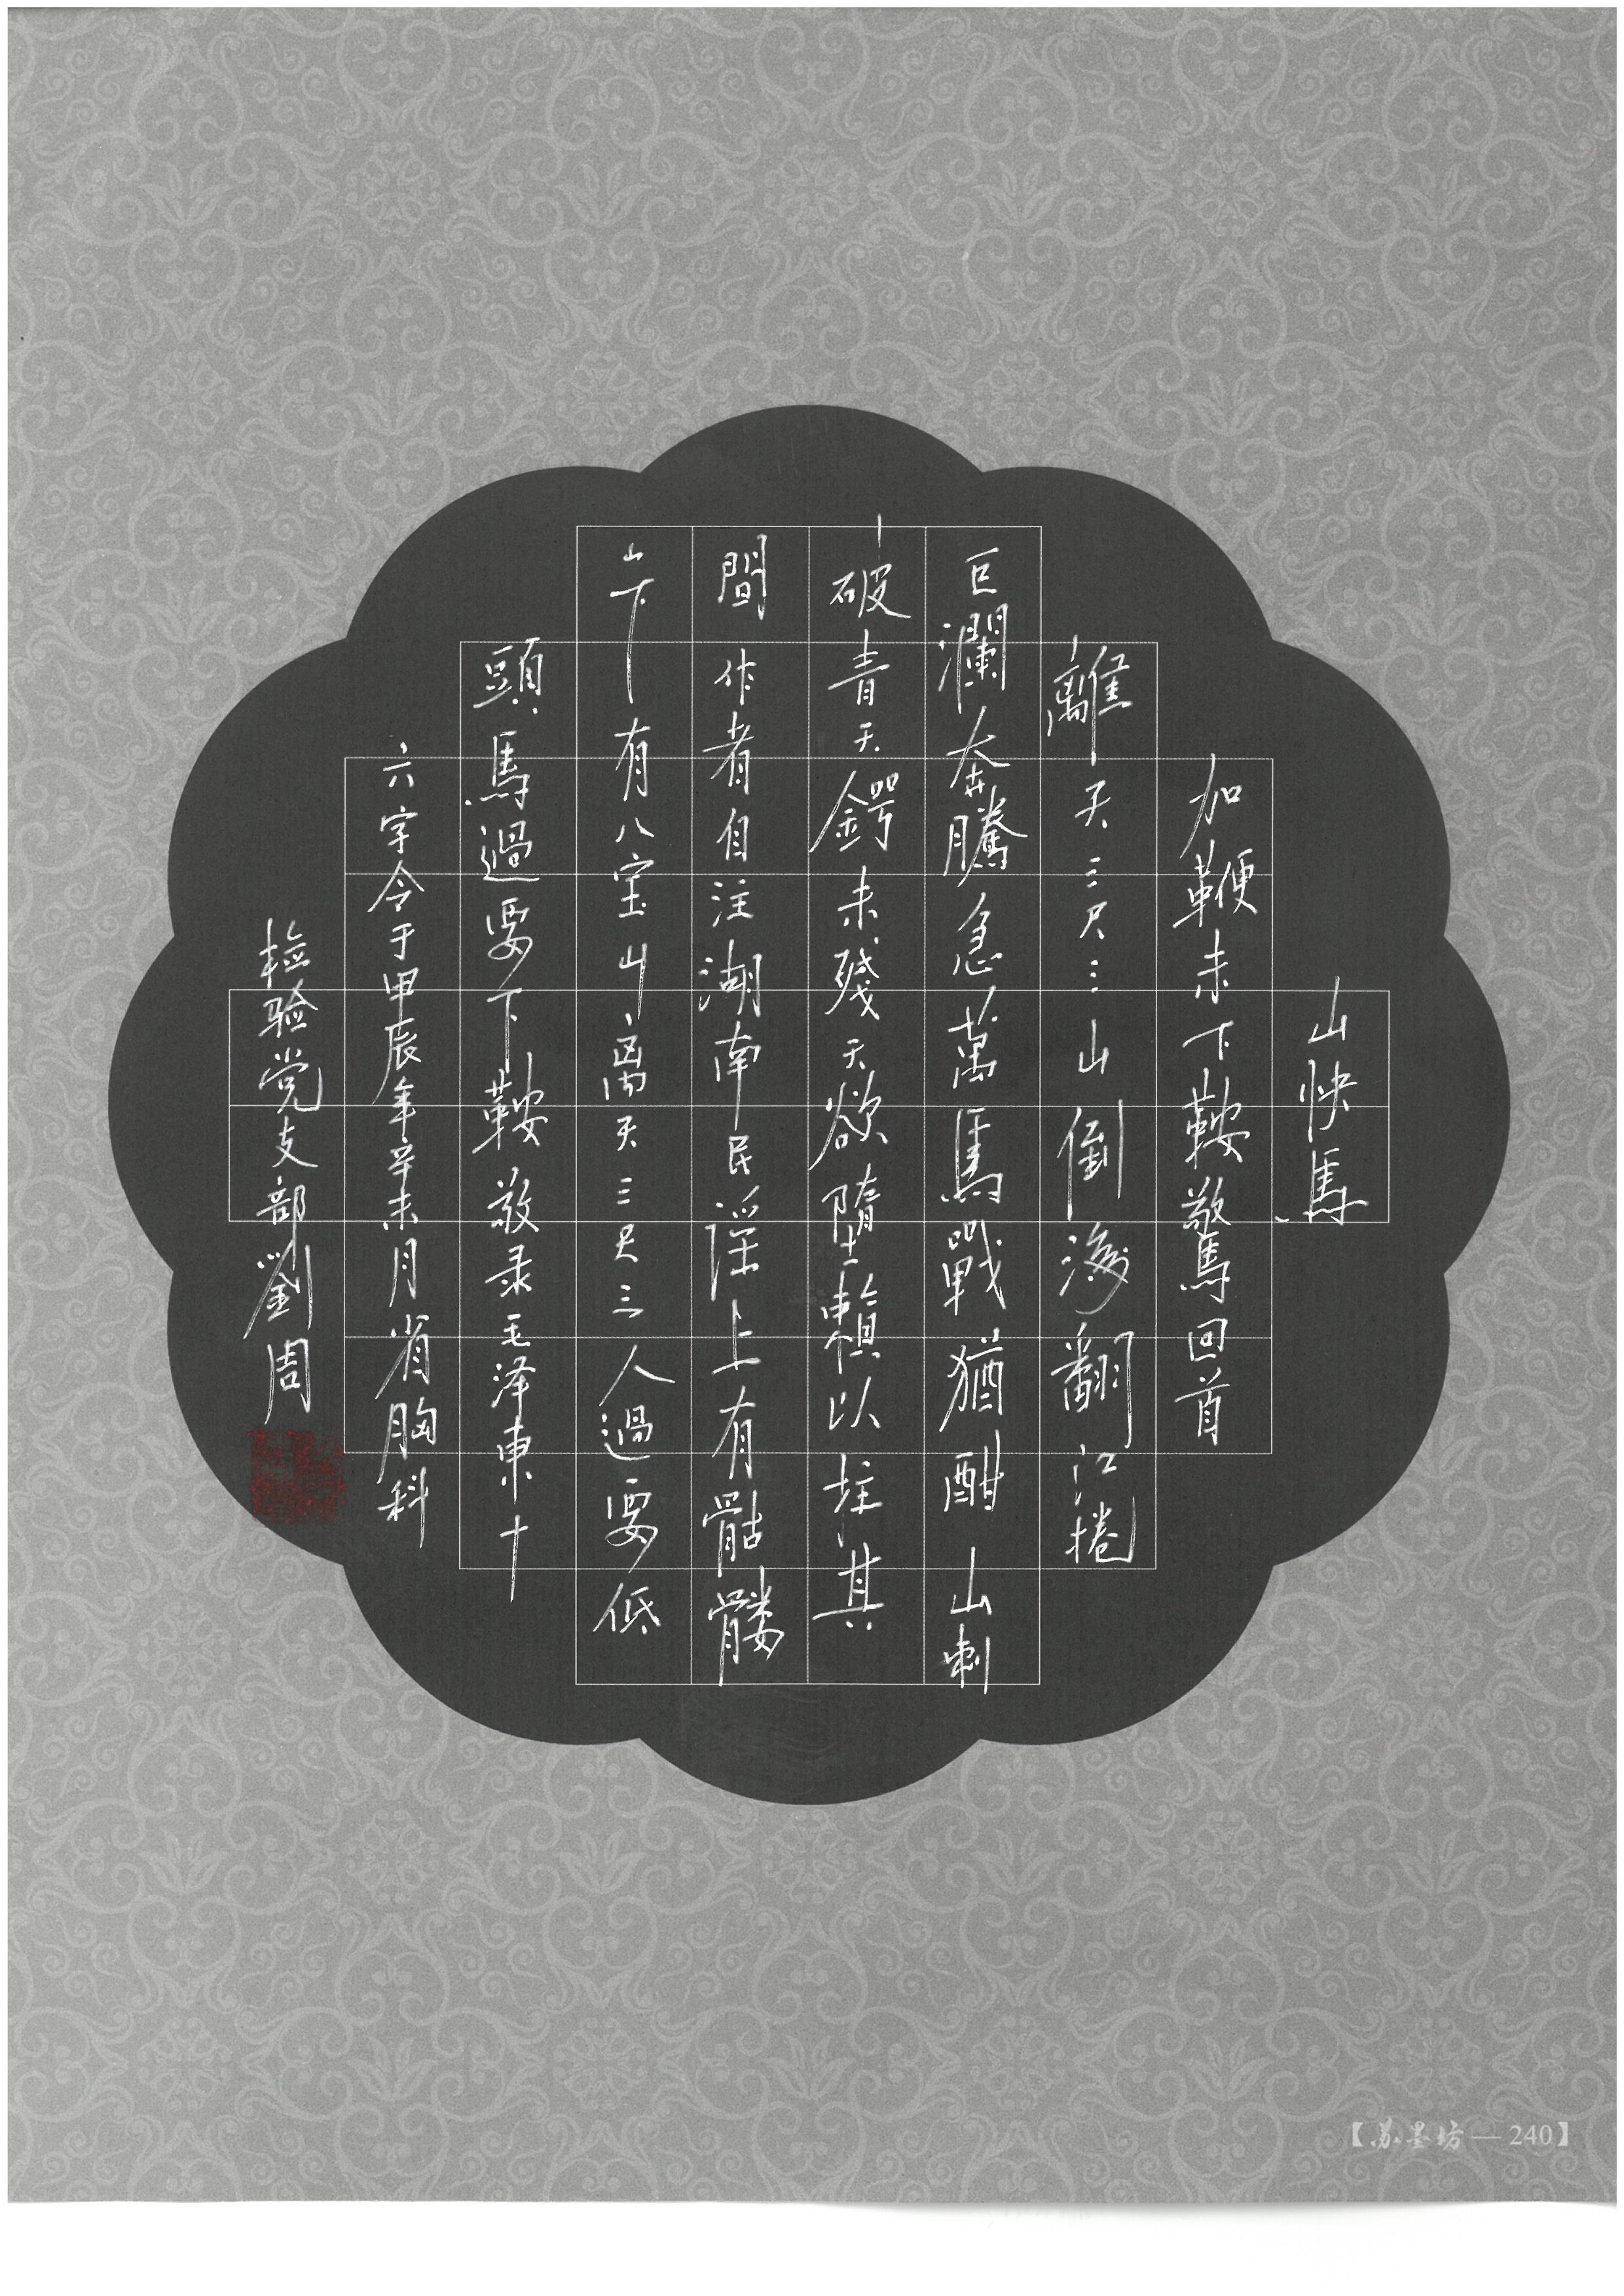 山快馬
加鞭未下鞍驚回首
離天三尺三山倒海翻江捲
巨瀾奔騰急萬馬戰猶酣山刺
破青天鍔未殘天欲墮賴以拄其
間作者自注湖南民謡上有骷髏
山下有八宝山离天三尺三人過要低
頭馬過要下鞍敬录毛泽東十
六字令于甲辰年辛未月省胸科
检验党支部劉周
【苏墨坊—240】